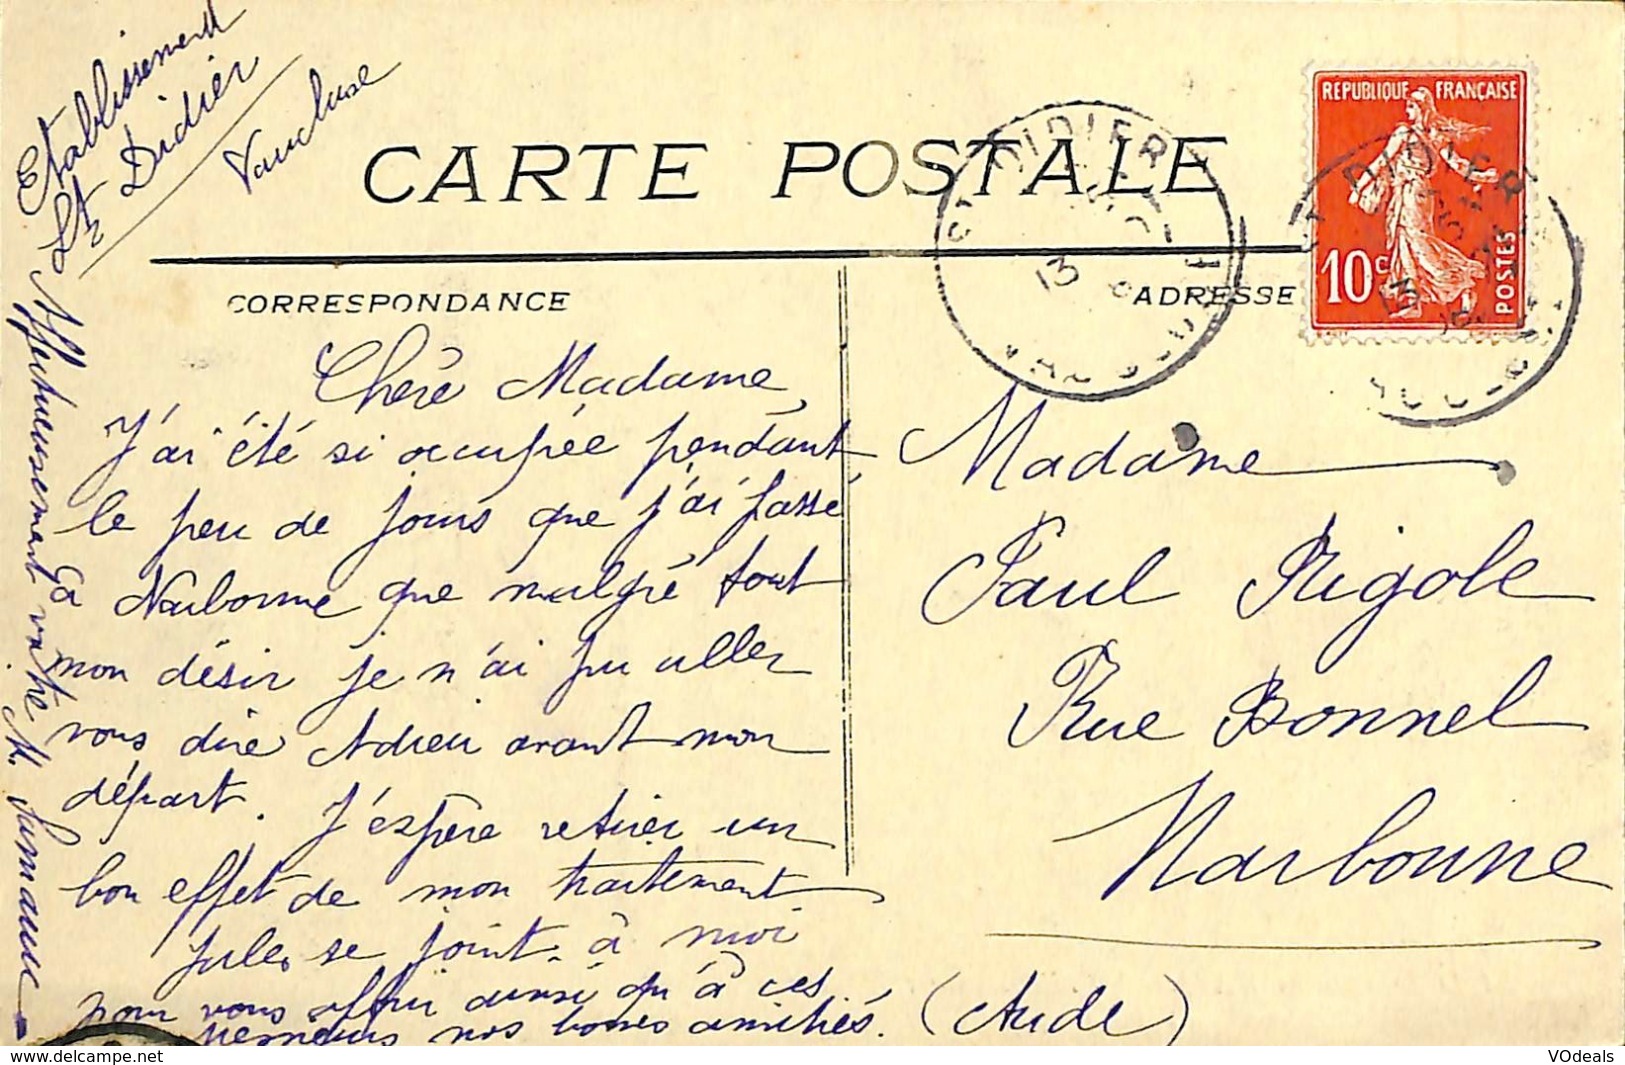 Etablissement
St Didier
Vaucluse
CARTE POSTALE
CORRESPONDANCE
ADRESSE
REPUBLIQUE FRANÇAISE
10c
POSTES
ST DIDIER
VAUCLUSE
13
Chère Madame,
J'ai été si occupée pendant
le peu de jours que j'ai passé
à Narbonne que malgré tout
mon désir je n'ai pu aller
vous dire Adieu avant mon
départ. J'espère retirer un
bon effet de mon traitement
Jules se joint à moi
pour vous offrir ainsi qu'à ces
nos bonnes amitiés.
Affectueusement votre M.
Madame
Paul Rigole
Rue Bonnel
Narbonne
(Aude)
VOdeals
https://www.delcampe.net